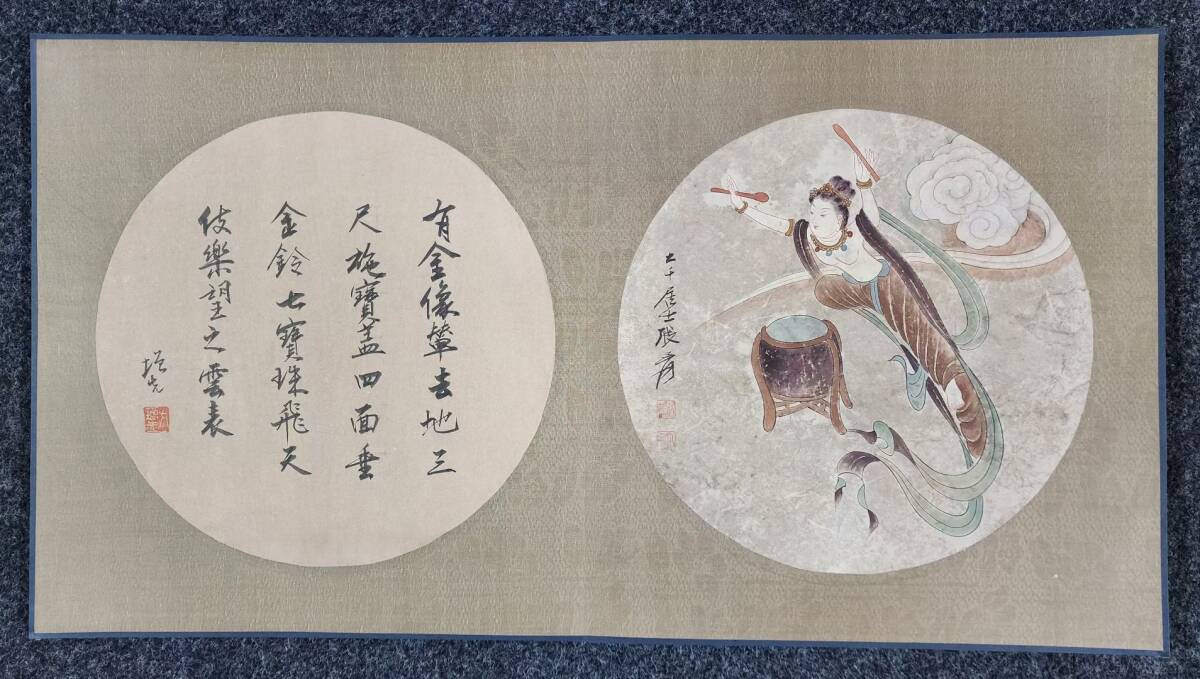 大千居士張爰
有金像輦去地三
尺施寶蓋四面垂
金鈴七寶珠飛天
伎樂望之雲表